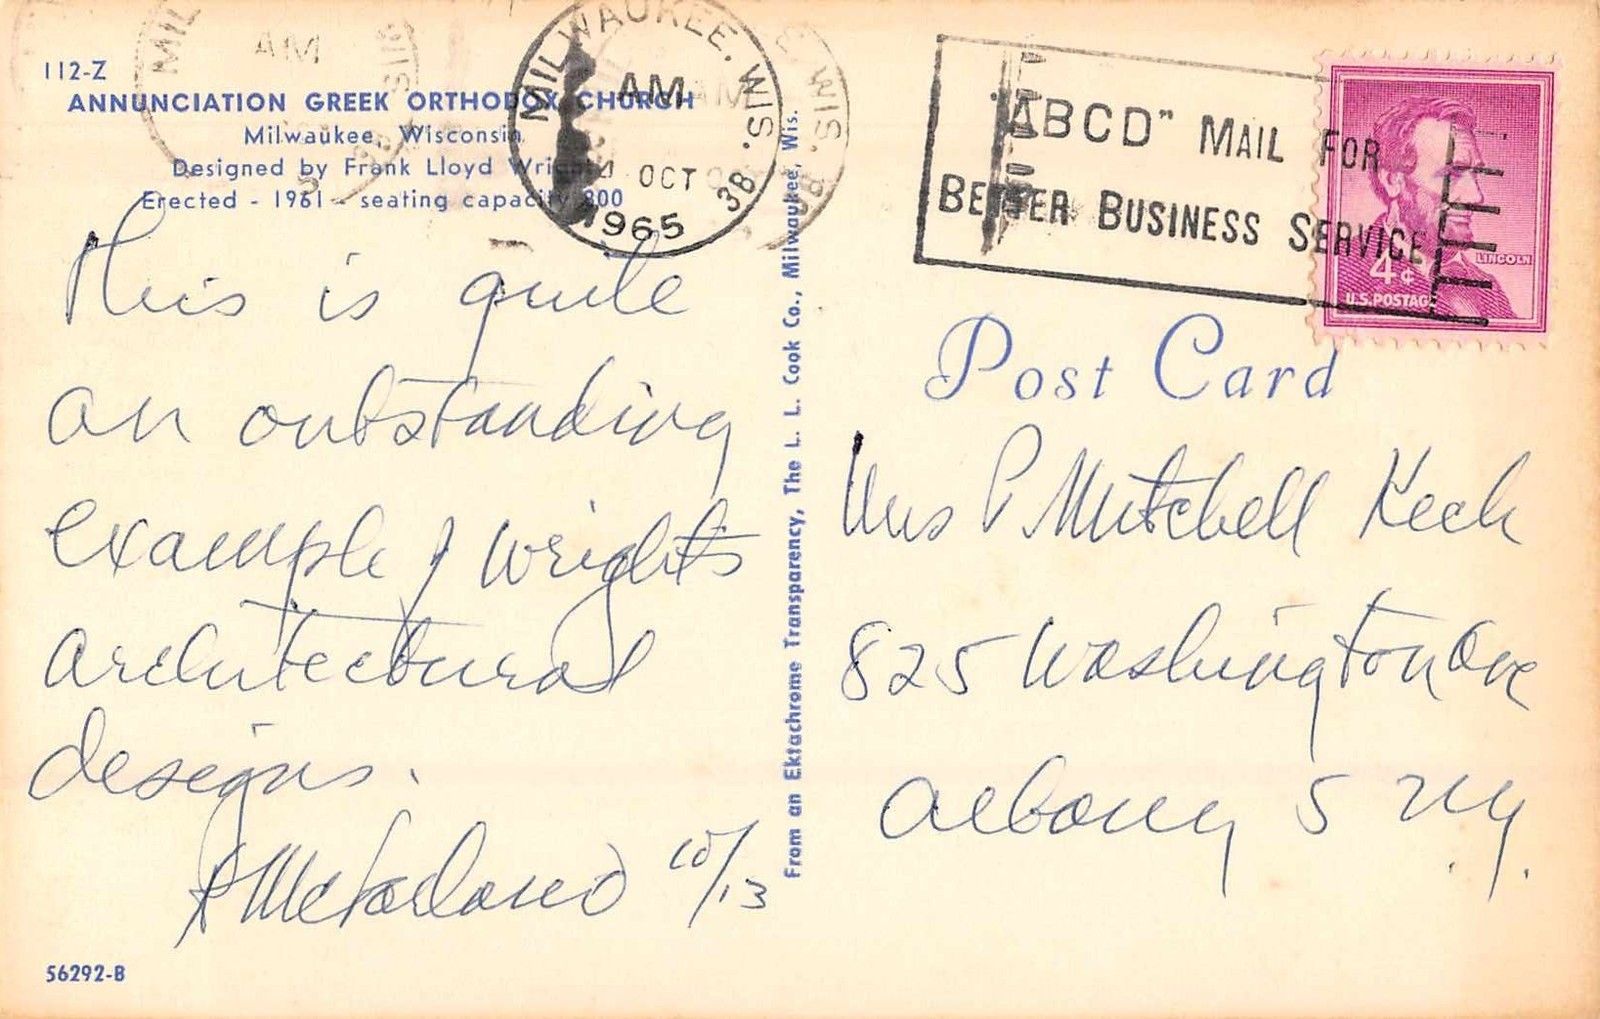 112-Z
ANNUNCIATION GREEK ORTHODOX CHURCH
Milwaukee, Wisconsin
Designed by Frank Lloyd Wright
Erected - 1961 - seating capacity 800
MILWAUKEE, WIS.
AM
OCT
1965
3B
"ABCD" MAIL FOR
BETTER BUSINESS SERVICE
4¢
LINCOLN
U.S. POSTAGE
This is quite
an outstanding
example of Wrights
architectural
designs.
McFarland 10/13
56292-B
From an Ektachrome Transparency, The L. L. Cook Co., Milwaukee, Wis.
Post Card
Mrs P Mitchell Keck
825 Washington Ave
Albany 5 NY.